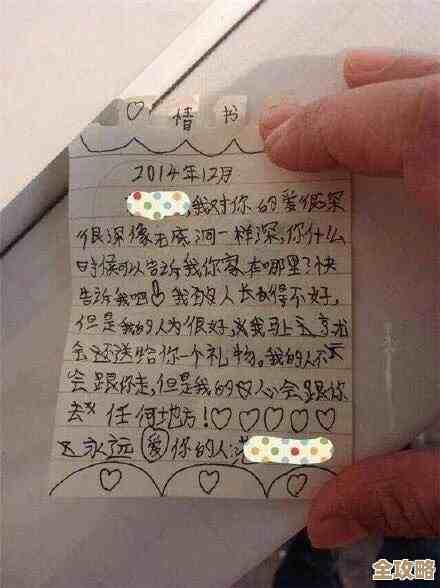 ♡情书
2014年12月
,我对你的爱很深
很深像无底洞一样深,你什么
时候可以告诉我你家在哪里?快
告诉我吧!我的人长得不好,
但是我的人为很好,我马上
会还送给你一个礼物。我的人不
会跟你走,但是我的心会跟你
去任何地方!♡♡♡♡♡
永远爱你的人:
全攻略